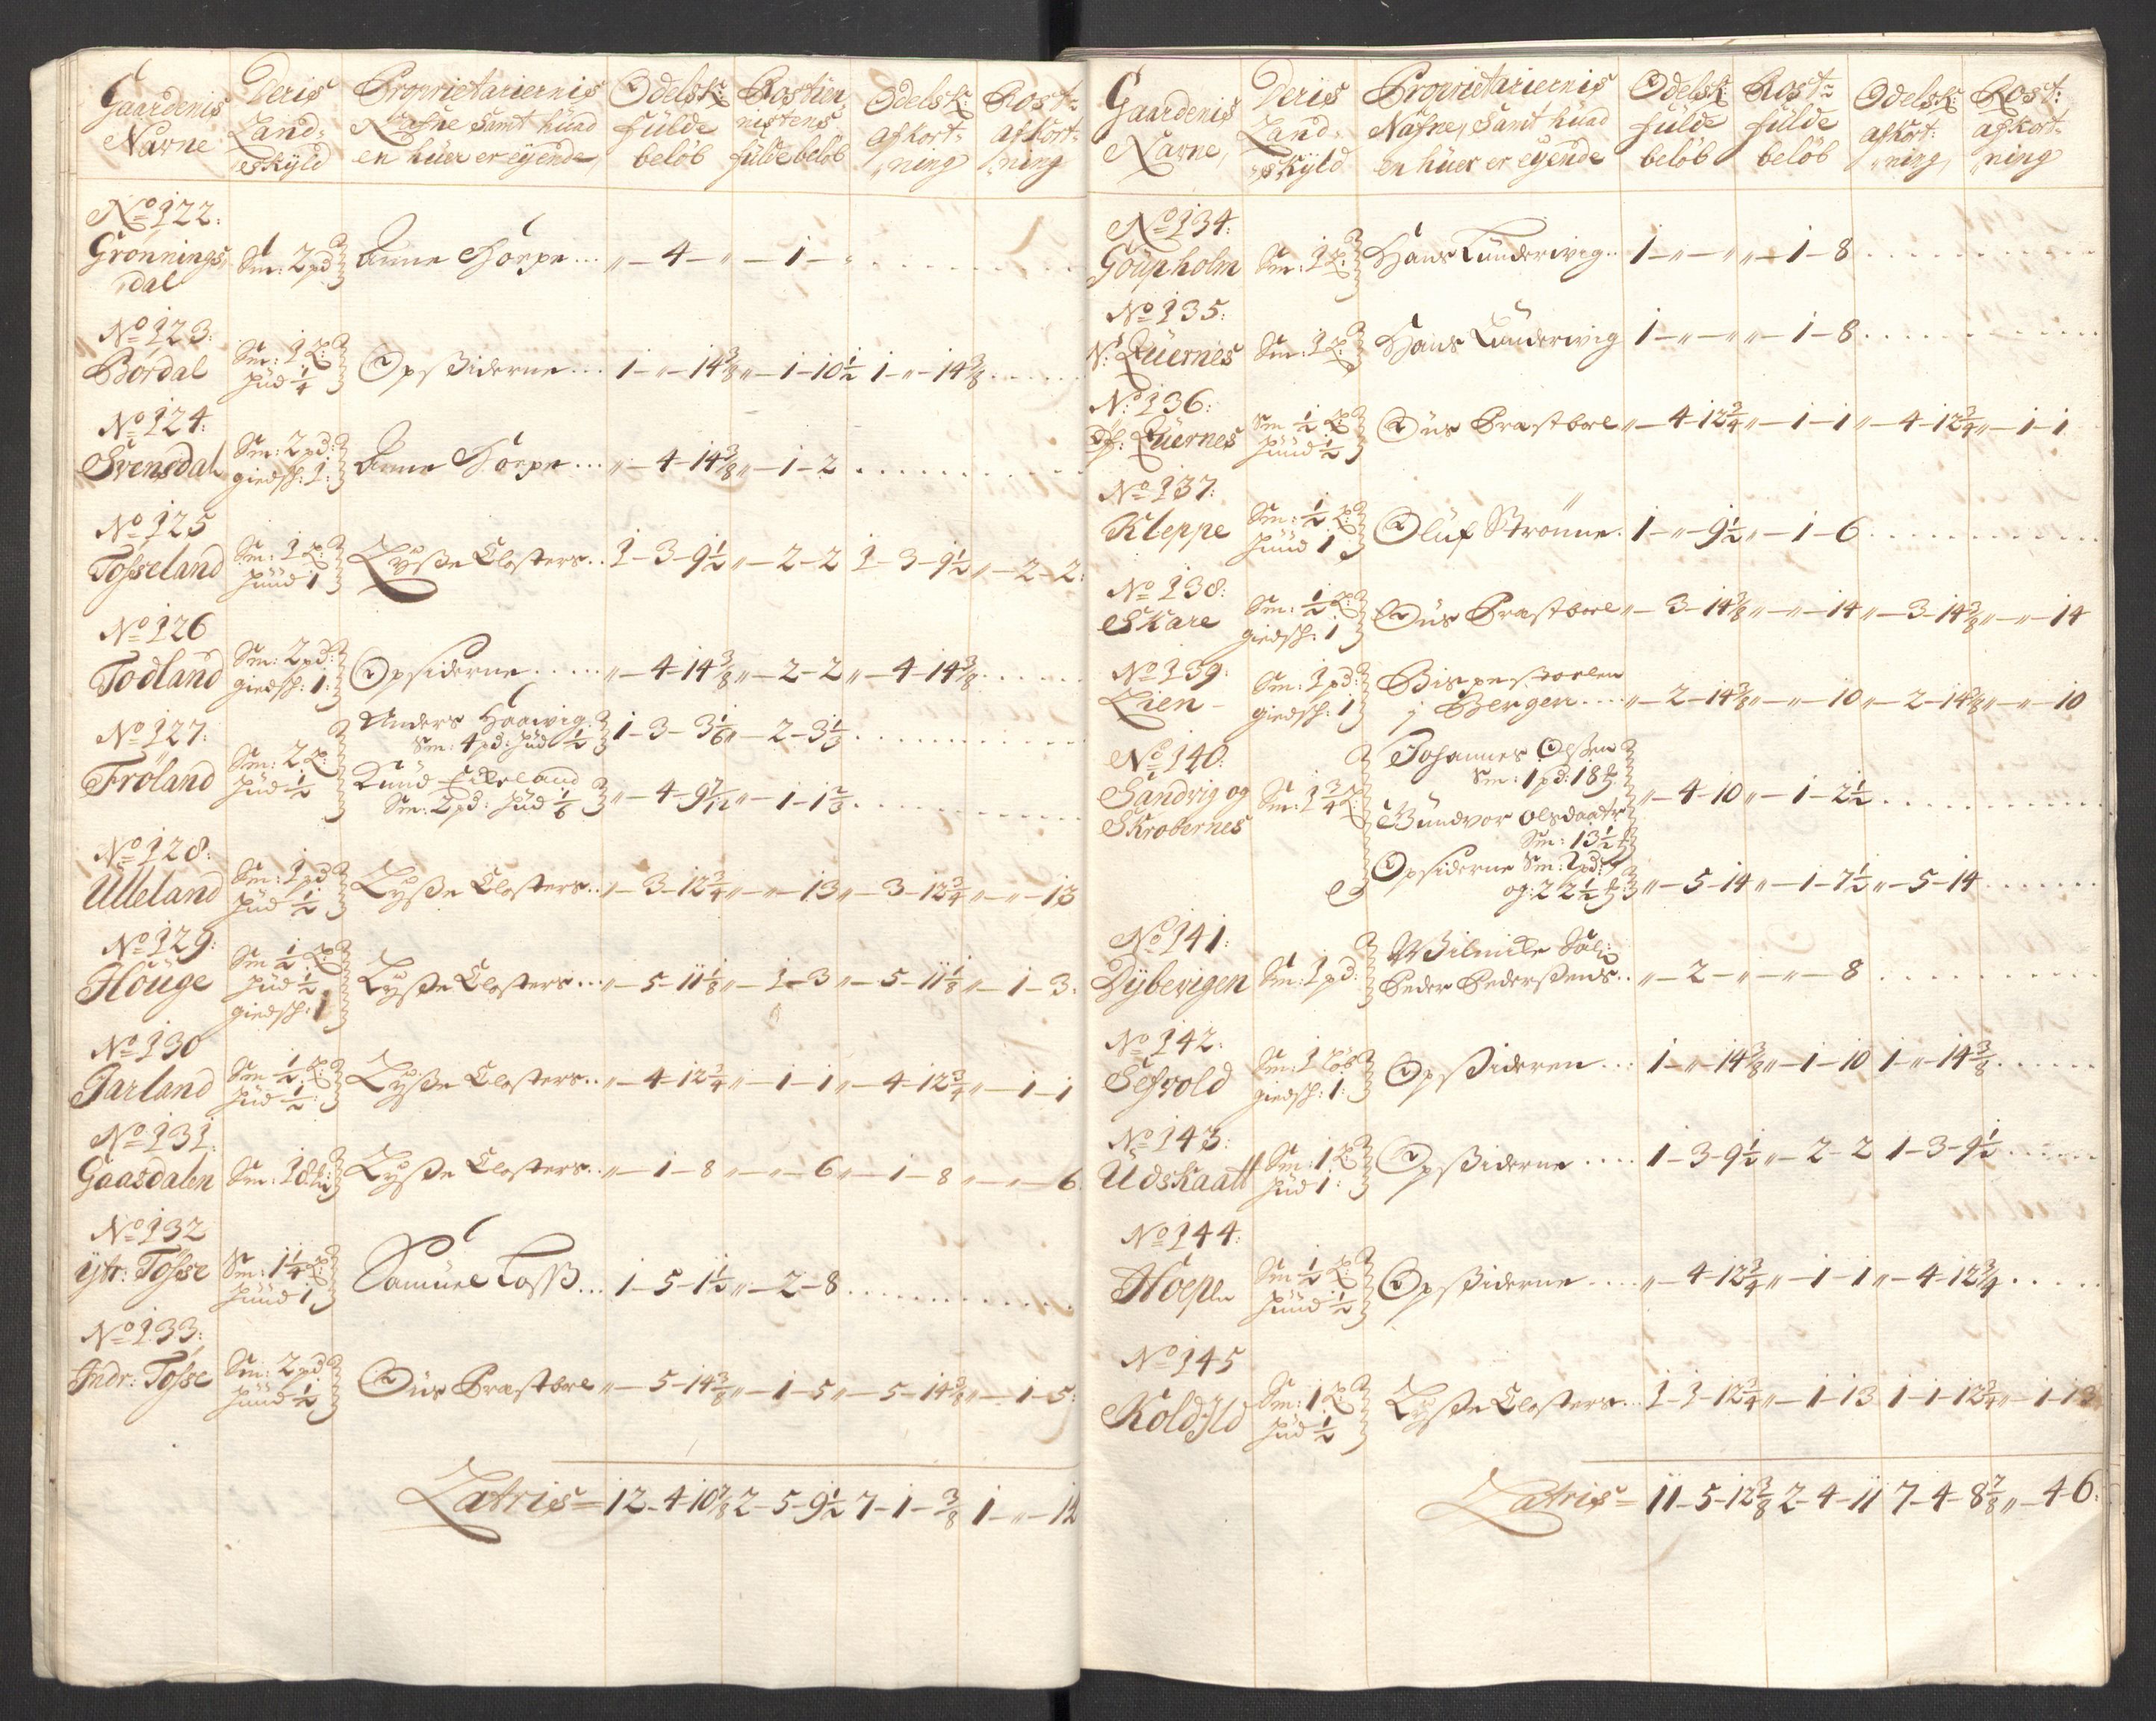 Gaardenis Navne | Deris Land-skyld | Proprietariernis Nafne samt huad en huer er eyende | Odelsk: fulde beløb | Rostienistens fulde beløb | Odelsk: afkort-ning | Rost: afkort-ning
No 122:
Grønnings dal | Sm: 2 pd | Anne Hoepe ... | „ - 4 - „ | „ - 1 - „
No 123:
Bordal | Sm: 1 L: hud 1/4 | Opsiderne ... | 1 - „ - 14 3/8 | „ - 1 - 10 1/2 | 1 - „ - 14 3/8
No 124:
Svensdal | Sm: 2 pd: giedsk: 1: | Anne Hoepe ... | „ - 4 - 14 3/8 | „ - 1 - 2
No 125
Tosseland | Sm: 1 L: huud 1 | Lysse Closters .. | 1 - 3 - 9 1/2 | „ - 2 - 2 | 1 - 3 - 9 1/2 | „ - 2 - 2:
No 126
Todland | Sm: 2 pd: giedsk: 1: | Opsiderne ..... | „ - 4 - 14 3/8 | „ - 2 - 2 | „ - 4 - 14 3/8
No 127:
Frøland | Sm: 2 L: hud 1/2 | Anders Haavig: Sm: 4 pd: hud 1/2 | 1 - 3 - 3 1/6 | „ - 2 - 3 1/3
Knud Eikeland Sm: 2 pd: hud 1/6 | „ - 4 - 9 7/12 | „ - 1 - 1 2/3
No 128:
Ulleland | Sm: 1 pd hud 1/2 | Lysse Closters .. | „ - 3 - 12 3/4 | „ - „ - 13 | „ - 3 - 12 3/4 | „ - „ - 13
No 129:
Houge | Sm 1/2 L: hud 1/2 giedsk: 1 | Lysse Closters ... | „ - 5 - 11 1/8 | „ - 1 - 3 | „ - 5 - 11 1/8 | „ - 1 - 3:
No 130
Jarland | Sm 1/2 L: hud 1/2: | Lysse Closters .. | „ - 4 - 12 3/4 | „ - 1 - 1 | „ - 4 - 12 3/4 | „ - 1 - 1
No 131
Gaasdalen | Sm: 18 | Lysse Closters .. | „ - 1 - 8 | „ - „ - 6 | „ - 1 - 8 | „ - „ - 6.
No 132
ytr: Tøsse | Sm: 1 1/4 L: huud 1 | Samuel Loss ... | 1 - 5 - 1 1/2 | „ - 2 - 8
No 133:
Indr: Tøsse | Sm: 2 pd huud 1/2 | Ous Præstbol | „ - 5 - 14 3/8 | „ - 1 - 5 | „ - 5 - 14 3/8 | „ - 1 - 5:
Latris = 12 - 4 - 10 7/8 | 2 - 5 - 9 1/2 | 7 - 1 - 3/8 | 1 - „ - 12
Gaardenis Navne, | Deris Land-skyld | Proprietariernis Nafne, samt huad en huer er eyende | Odelsk: fulde beløb | Rost: fulde beløb | Odelsk: afkort: ning, | Rost: afkort-ning
No 134:
Goupholm | Sm: 1 L: | Hans Lunderwig .. | 1 - „ - „ | „ - 1 - 8
No 135:
N: Quernes | Sm: 1 L: | Hans Lunderwig | 1 - „ - „ | „ - 1 - 8
No 136:
Øf: Quernes | Sm 1/2 L: huud 1/2 | Ous Præstbol | „ - 4 - 12 3/4 | „ - 1 - 1 | „ - 4 - 12 3/4 | „ - 1 - 1
No 137:
Kleppe | Sm: 1/2 L: huud 1 | Oluf Strønne . | 1 - „ - 9 1/2 | „ - 1 - 6
No 138:
Skare | Sm: 1/2 L: giedsk: 1 | Ous Præstbol | „ - 3 - 14 3/8 | „ - „ - 14 | „ - 3 - 14 3/8 | „ - „ - 14
No 139:
Lien - | Sm: 1 pd: giedsk: 1 | Bispestoelen i Bergen .... | „ - 2 - 14 3/8 | „ - „ - 10 | „ - 2 - 14 3/8 | „ - „ - 10
No 140:
Sandvig og Skrobernes | Sm: 1 3/4 L: | Johannes Olsen Sm: 1 pd: 18
Gundvor Olsdaatr Sm: 13 1/2 | „ - 4 - 10 | „ - 1 - 2 1/2
Opsiderne Sm: 2 pd: og: 22 1/2 | „ - 5 - 14 | „ - 1 - 7 1/2 | „ - 5 - 14
No 141:
Dybevigen | Sm: 1 pd: | Wilmicke Sal: Peder Pedersens .. | „ - 2 - „ | „ - „ - 8
No 142:
Sefvold | Sm: 1 løb giedsk: 1: | Opsideren ... | 1 - „ - 14 3/8 | „ - 1 - 10 | 1 - „ - 14 3/8
No 143:
Udskaatt | Sm: 1 L: hud 1: | Opsiderne .... | 1 - 3 - 9 1/2 | „ - 2 - 2 | 1 - 3 - 9 1/2
No 144:
Hoepe | Sm 1/2 L: huud 1/2 | Opsiderne .... | „ - 4 - 12 3/4 | „ - 1 - 1 | „ - 4 - 12 3/4
No 145
Koldjld | Sm: 1 L: hud 1/2 | Lysse Closters ... | 1 - 1 - 12 3/4 | „ - 1 - 13 | 1 - 1 - 12 3/4 | „ - 1 - 13
Latris = 11 - 5 - 12 3/8 | 2 - 4 - 11 | 7 - 4 - 8 7/8 | „ - 4 - 6: